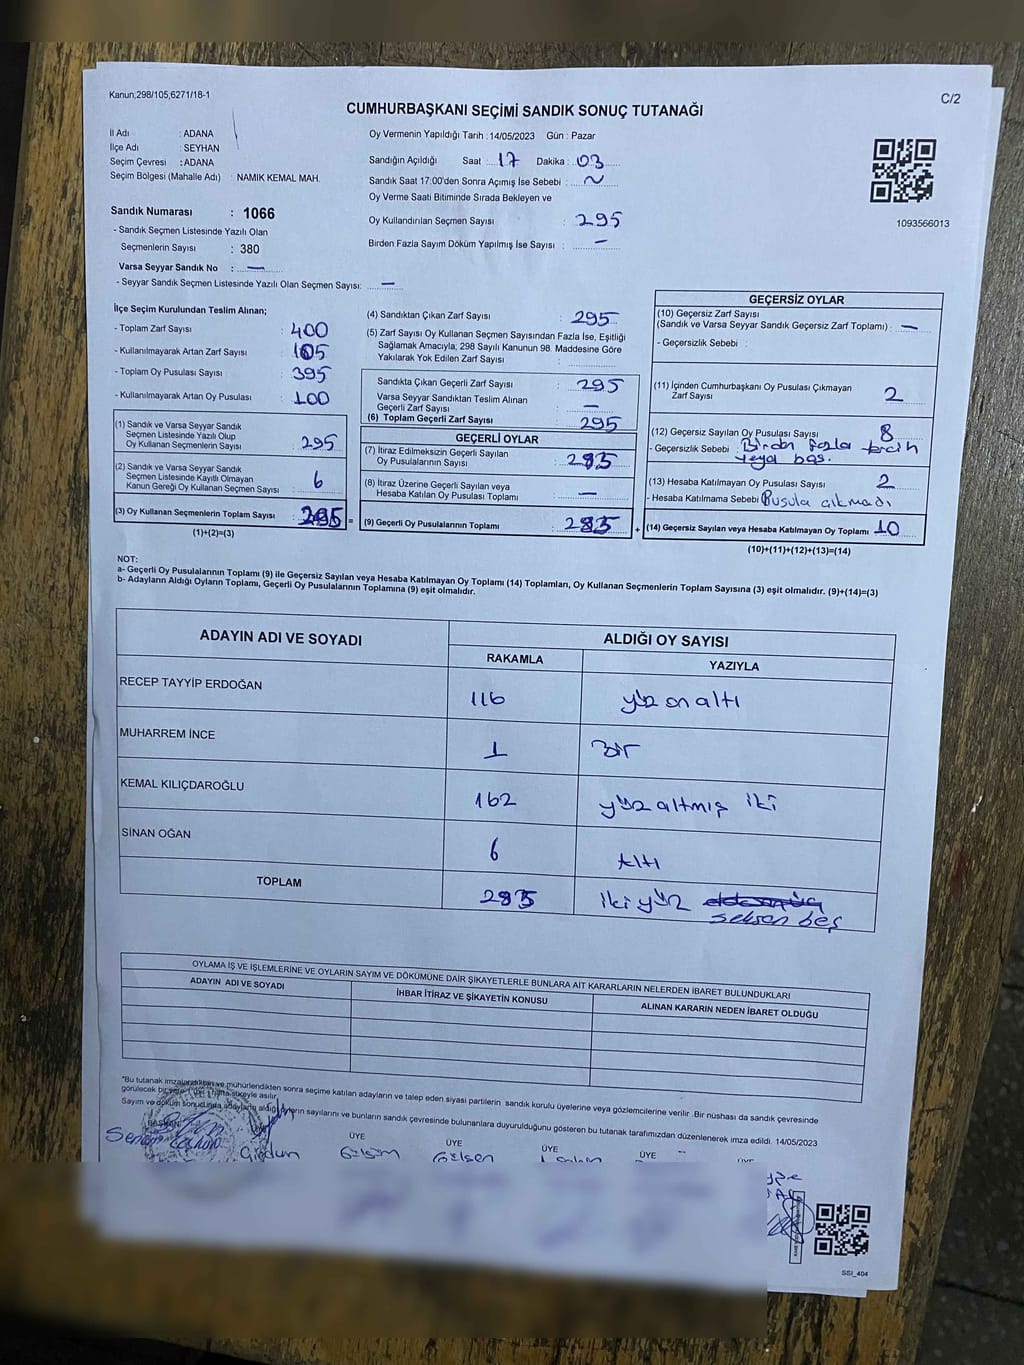 Kanun,298/105,6271/18-1
C/2
CUMHURBAŞKANI SEÇİMİ SANDIK SONUÇ TUTANAĞI
İl Adı : ADANA
İlçe Adı : SEYHAN
Seçim Çevresi : ADANA
Seçim Bölgesi (Mahalle Adı) : NAMIK KEMAL MAH.
Oy Vermenin Yapıldığı Tarih : 14/05/2023 Gün : Pazar
Sandığın Açıldığı Saat : 17 Dakika : 03
Sandık Saat 17:00'den Sonra Açımış İse Sebebi : ~
Oy Verme Saati Bitiminde Sırada Bekleyen ve
Oy Kullandırılan Seçmen Sayısı : 295
Birden Fazla Sayım Döküm Yapılmış İse Sayısı : —
1093566013
Sandık Numarası : 1066
- Sandık Seçmen Listesinde Yazılı Olan
Seçmenlerin Sayısı : 380
Varsa Seyyar Sandık No : —
- Seyyar Sandık Seçmen Listesinde Yazılı Olan Seçmen Sayısı: —
İlçe Seçim Kurulundan Teslim Alınan;
- Toplam Zarf Sayısı : 400
- Kullanılmayarak Artan Zarf Sayısı : 105
- Toplam Oy Pusulası Sayısı : 395
- Kullanılmayarak Artan Oy Pusulası : 100
(1) Sandık ve Varsa Seyyar Sandık
Seçmen Listesinde Yazılı Olup
Oy Kullanan Seçmenlerin Sayısı : 295
(2) Sandık ve Varsa Seyyar Sandık
Seçmen Listesinde Kayıtlı Olmayan
Kanun Gereği Oy Kullanan Seçmen Sayısı : 6
(3) Oy Kullanan Seçmenlerin Toplam Sayısı : 295 =
(1)+(2)=(3)
(4) Sandıktan Çıkan Zarf Sayısı : 295
(5) Zarf Sayısı Oy Kullanan Seçmen Sayısından Fazla İse, Eşitliği
Sağlamak Amacıyla; 298 Sayılı Kanunun 98. Maddesine Göre
Yakılarak Yok Edilen Zarf Sayısı :
Sandıkta Çıkan Geçerli Zarf Sayısı : 295
Varsa Seyyar Sandıktan Teslim Alınan
Geçerli Zarf Sayısı : —
(6) Toplam Geçerli Zarf Sayısı : 295
GEÇERLİ OYLAR
(7) İtiraz Edilmeksizin Geçerli Sayılan
Oy Pusulalarının Sayısı : 285
(8) İtiraz Üzerine Geçerli Sayılan veya
Hesaba Katılan Oy Pusulası Toplamı : —
(9) Geçerli Oy Pusulalarının Toplamı : 285 +
GEÇERSİZ OYLAR
(10) Geçersiz Zarf Sayısı
(Sandık ve Varsa Seyyar Sandık Geçersiz Zarf Toplamı) : —
- Geçersizlik Sebebi :
(11) İçinden Cumhurbaşkanı Oy Pusulası Çıkmayan
Zarf Sayısı 2
(12) Geçersiz Sayılan Oy Pusulası Sayısı 8
- Geçersizlik Sebebi : Birden fazla tercih
veya boş.
(13) Hesaba Katılmayan Oy Pusulası Sayısı 2
- Hesaba Katılmama Sebebi : Pusula çıkmadı
(14) Geçersiz Sayılan veya Hesaba Katılmayan Oy Toplamı 10
(10)+(11)+(12)+(13)=(14)
NOT:
a- Geçerli Oy Pusulalarının Toplamı (9) ile Geçersiz Sayılan veya Hesaba Katılmayan Oy Toplamı (14) Toplamları, Oy Kullanan Seçmenlerin Toplam Sayısına (3) eşit olmalıdır. (9)+(14)=(3)
b- Adayların Aldığı Oyların Toplamı, Geçerli Oy Pusulalarının Toplamına (9) eşit olmalıdır.
ADAYIN ADI VE SOYADI
ALDIĞI OY SAYISI
RAKAMLA
YAZIYLA
RECEP TAYYİP ERDOĞAN 116 yüz on altı
MUHARREM İNCE 1 Bir
KEMAL KILIÇDAROĞLU 162 yüz altmış iki
SİNAN OĞAN 6 Altı
TOPLAM 285 iki yüz
seksen beş
OYLAMA İŞ VE İŞLEMLERİNE VE OYLARIN SAYIM VE DÖKÜMÜNE DAİR ŞİKAYETLERLE BUNLARA AİT KARARLARIN NELERDEN İBARET BULUNDUKLARI
ADAYIN ADI VE SOYADI
İHBAR İTİRAZ VE ŞİKAYETİN KONUSU
ALINAN KARARIN NEDEN İBARET OLDUĞU
*Bu tutanak imzalandıktan ve mühürlendikten sonra seçime katılan adayların ve talep eden siyasi partilerin sandık kurulu üyelerine veya gözlemcilerine verilir .Bir nüshası da sandık çevresinde
görülecek bir yere 1 (bir) hafta süreyle asılır.
Sayım ve döküm sonucunda adayların aldığı oyların sayılarını ve bunların sandık çevresinde bulunanlara duyurulduğunu gösteren bu tutanak tarafımızdan düzenlenerek imza edildi. 14/05/2023
BAŞKAN
ÜYE
ÜYE
ÜYE
ÜYE
Gülsüm
Gülsen
SSI_404